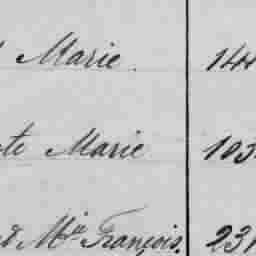 Marie 144
te Marie 103
d Mie François. 231